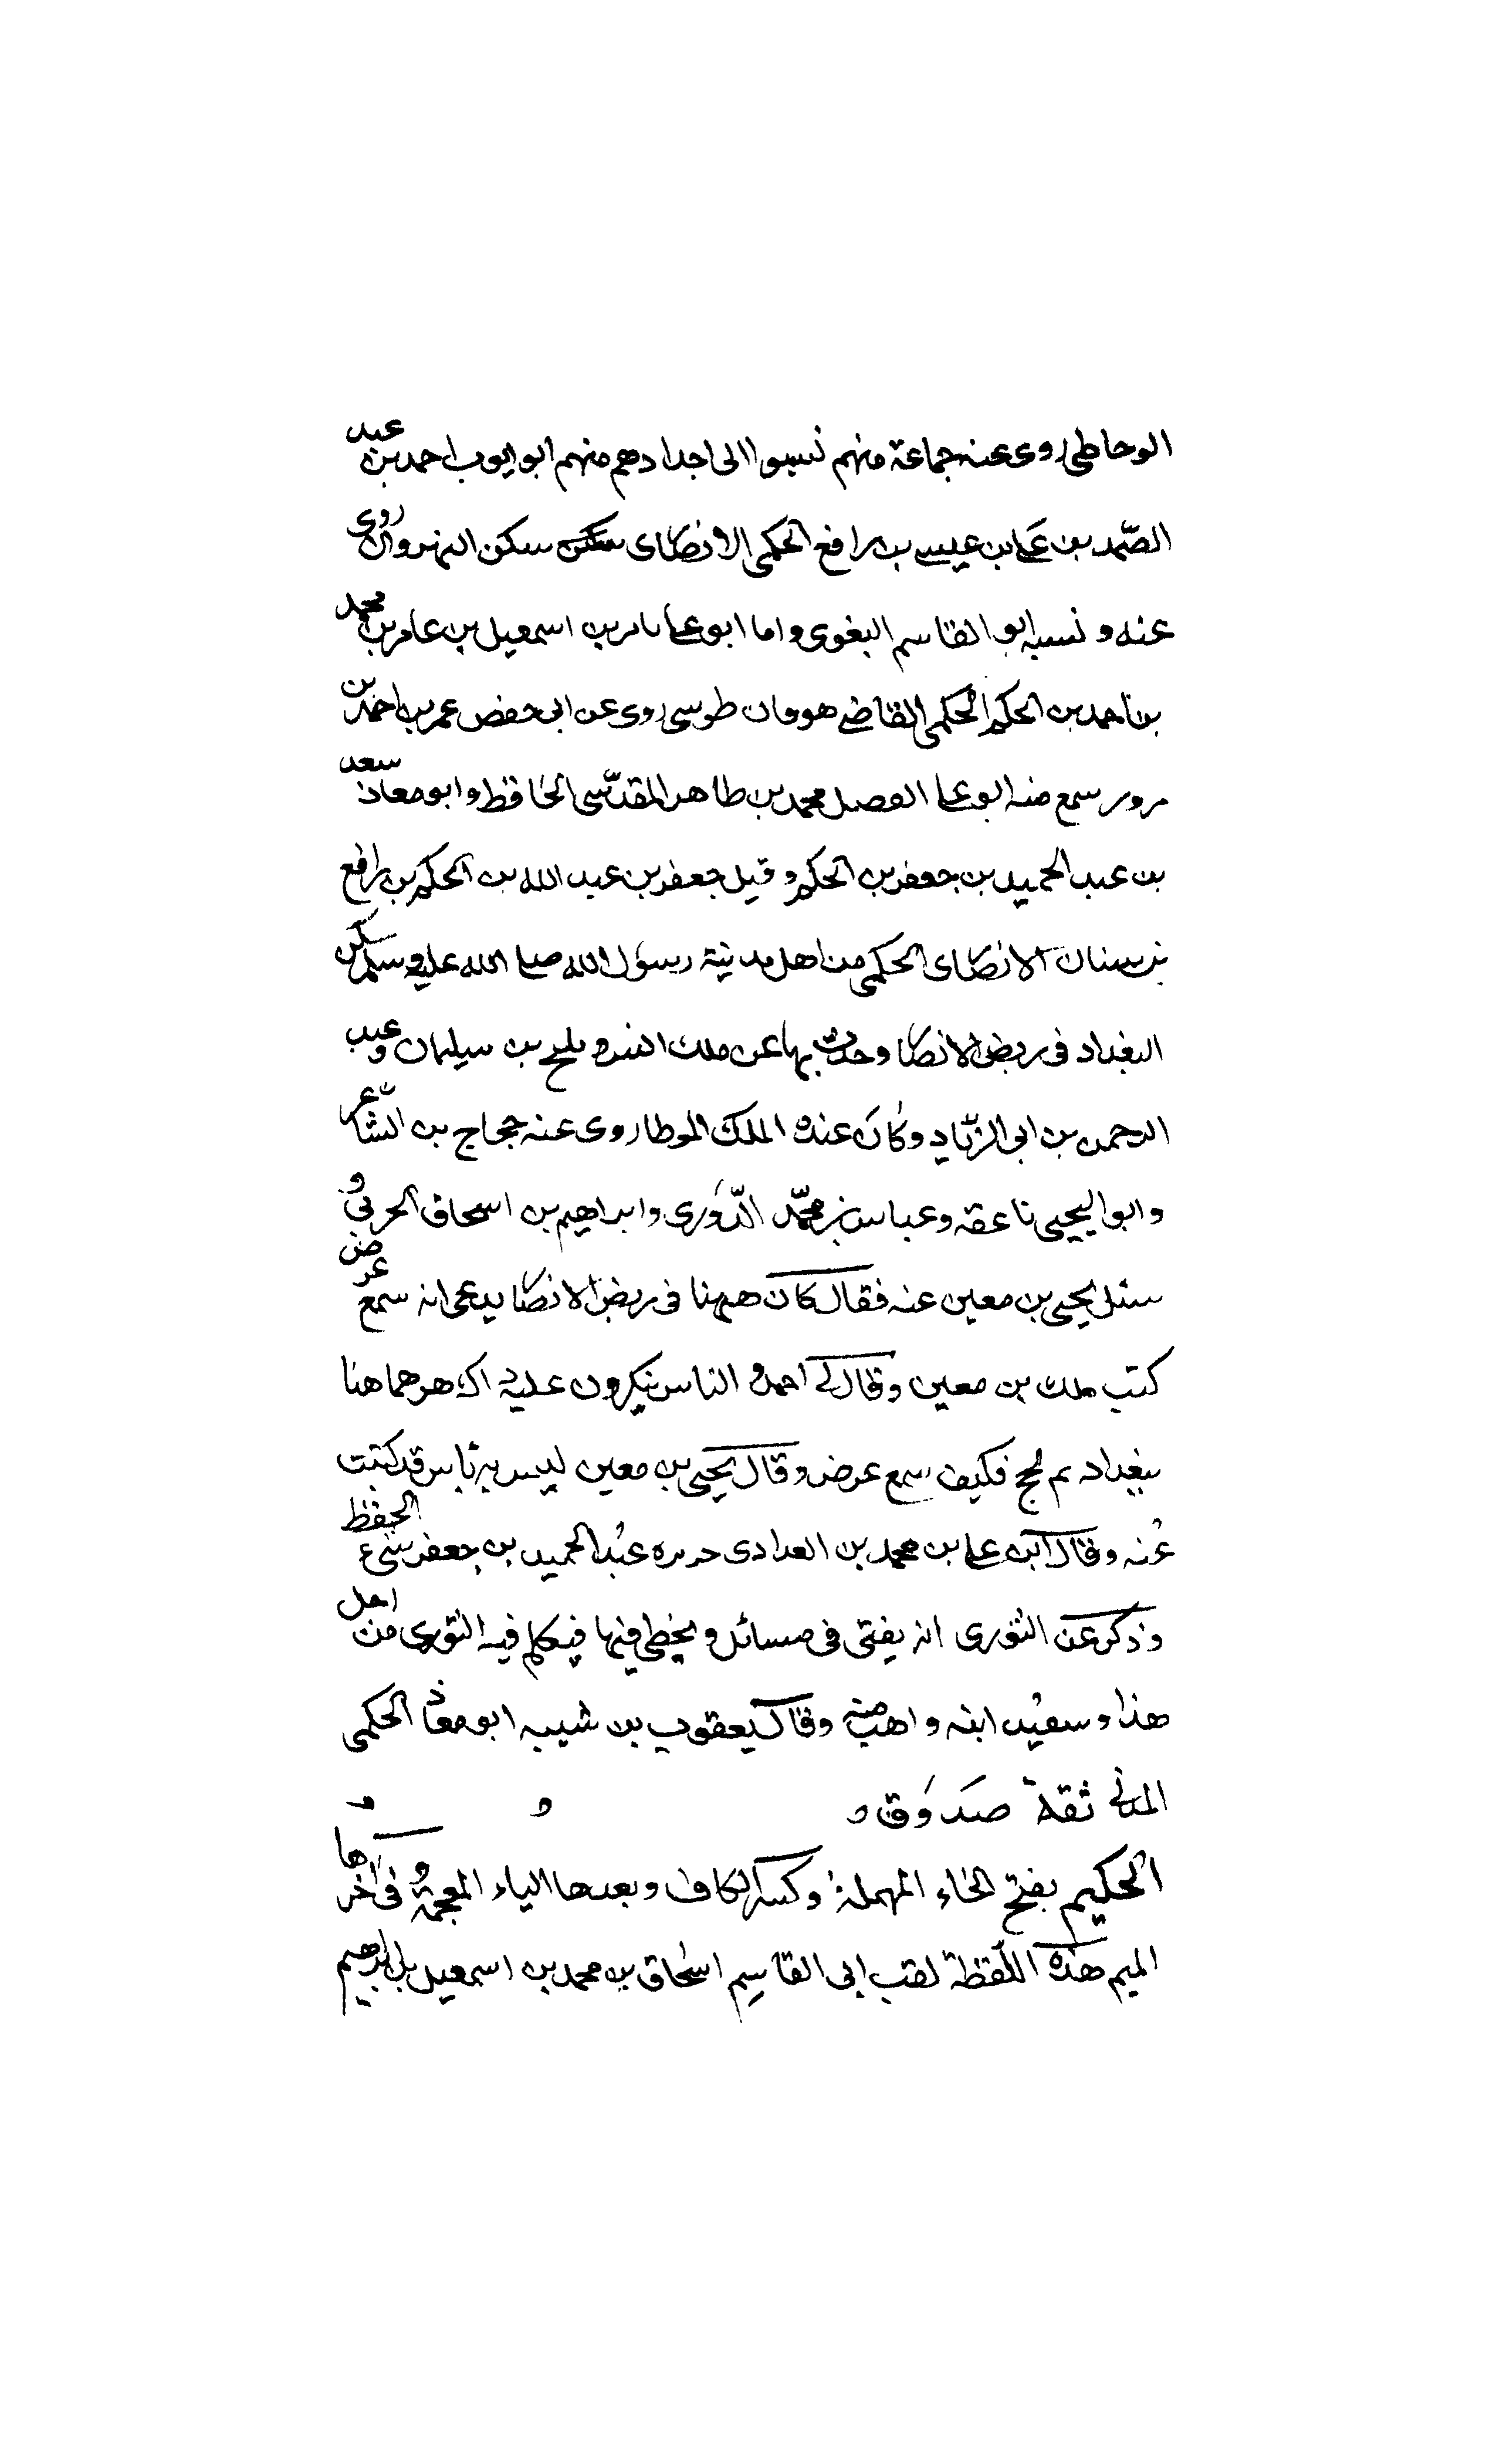 الوحاطى روى عنه جماعة منهم نسبوا الى اجدادهم منهم ابو ايوب احمد بن عبد
الصّمد بن على بن عيسى بن رافع الحكمى الانصارى سكن سكن النهروان روى
عنه ونسبه ابو القاسم البغوى واما ابو على ناصر بن اسمعيل بن عامر بن محمد
بن احمد بن الحكم الحكمى القاضى طوسى روى عن ابى حفص عمر بن احمد بن
مرور سمع منه ابو على الفضل محمد بن طاهر المقدّسى الحافظ وابو معاذ سعد
بن عبد الحميد بن جعفر بن الحكم وقيل جعفر بن عبد الله بن الحكم بن رافع
بن سنان الانصارى الحكمى من اهل مدينة رسول الله صلى الله عليه وسلم سكن
البغداد فى ربض الانصار وحدث بها عن ملك انس و فليح بن سليمان وعبد
الرحمن بن ابى الزناد وكان عنده الملك الموطا روى عنه حجاج بن الشاعر
وابو اليحيى ناعقه وعباس بن محمّد الدّورى وابراهيم بن اسحاق الحربى و
سئل يحيى بن معين عنه فقال كان ههنا فى ربض الانصار يدعى انه سمع عرض
كتب ملك بن معين وقال لى احمد و الناس ينكرون عليه ذاك هو هاهنا
ببغداد لم يحج فكيف سمع عرض وقال يحيى بن معين ليس به باس قد كتبت
عنه وقال ابن على بن محمد بن عبد الحميد بن جعفر سيئ الحفظ
وذكر عن الثورى انه يفتى فى مسائل ويخطى فيها فيكلم فيه الثورى من اجل
هذا وسعيد ابنه واهب منه وقال يعقوب بن شيبه ابو معاذ الحكمى
المدنى ثقة صدوق
الحكيم بفتح الحاء المهملة وكسر الكاف وبعدها الياء المعجمة وفى آخرها
الميم هذه اللّفظة لقب ابى القاسم اسحاق بن محمد بن اسمعيل بن ابراهيم